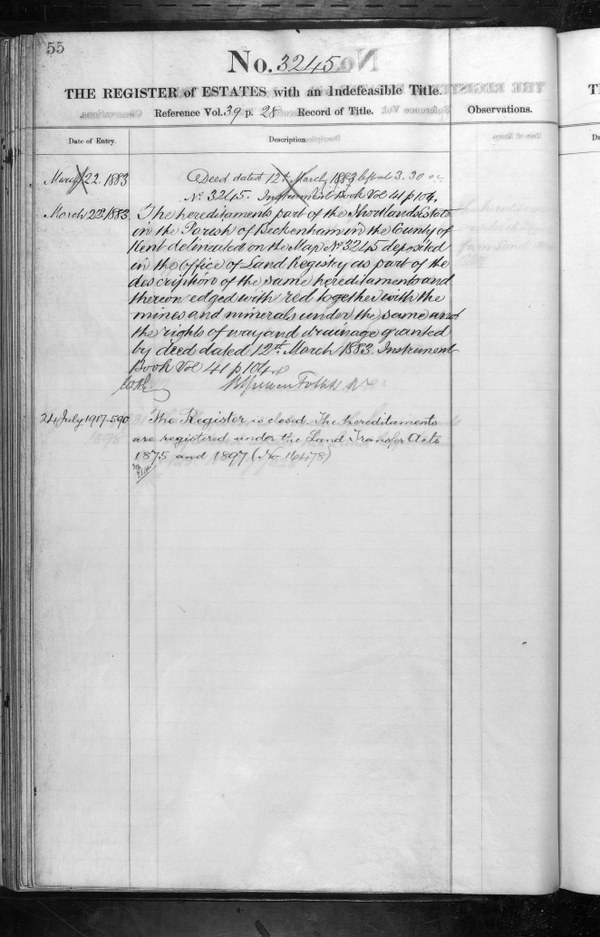 55
No. 3245
THE REGISTER of ESTATES with an Indefeasible Title.
Reference Vol. 39 p. 28 Record of Title.
Observations.
Date of Entry.
Description.
March 22. 1883
Deed dated 12th March 1883 left at 3.30
No 3245. Instrument Book Vol 41 p 104.
March 22d 1883.
The hereditaments part of the Shortlands Estate
in the Parish of Beckenham in the County of
Kent delineated on the Map No 3245 deposited
in the Office of Land Registry as part of the
description of the same hereditaments and
thereon edged with red together with the
mines and minerals under the same and
the rights of way and drainage granted
by deed dated 12th March 1883. Instrument
Book Vol 41 p 104
24 July 1917-590
The Register is closed. The hereditaments
are registered under the Land Transfer Acts
1875 and 1897 (No. 16478)